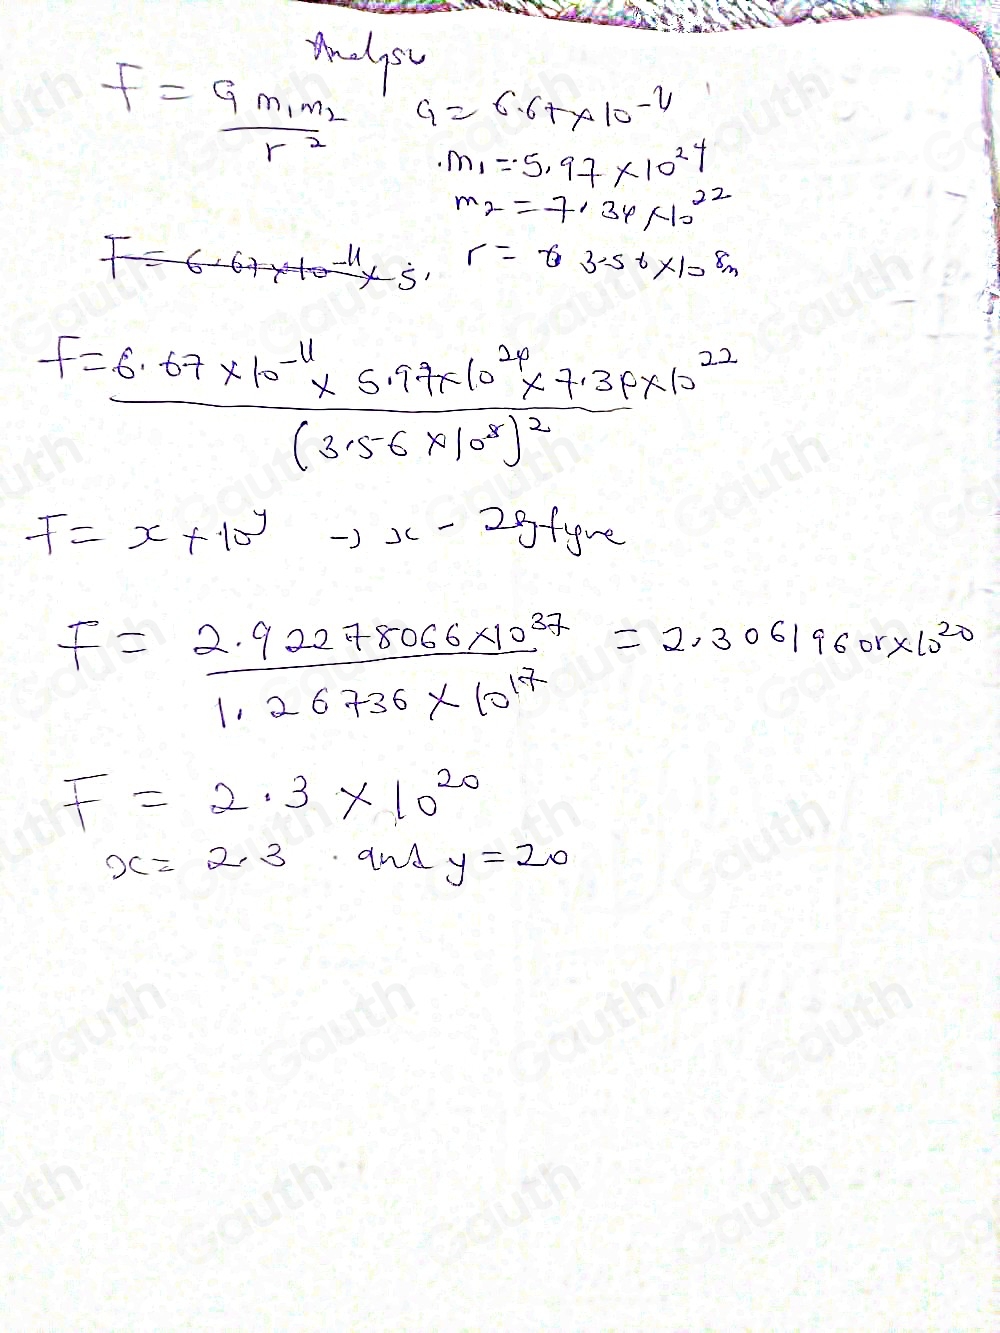 Analysis
F = G m₁m₂ / r²
G = 6.67 × 10⁻¹¹
m₁ = 5.97 × 10²⁴
m₂ = 7.34 × 10²²
F = 6.67 × 10⁻¹¹ × 5.
r = 3.56 × 10⁸ m
F = 6.67 × 10⁻¹¹ × 5.97 × 10²⁴ × 7.34 × 10²² / (3.56 × 10⁸)²
F = x × 10^y → x - 2sgfgure
F = 2.92278066 × 10³⁷ / 1.26736 × 10¹⁷ = 2.30619601 × 10²⁰
F = 2.3 × 10²⁰
x = 2.3 and y = 20
Gauth